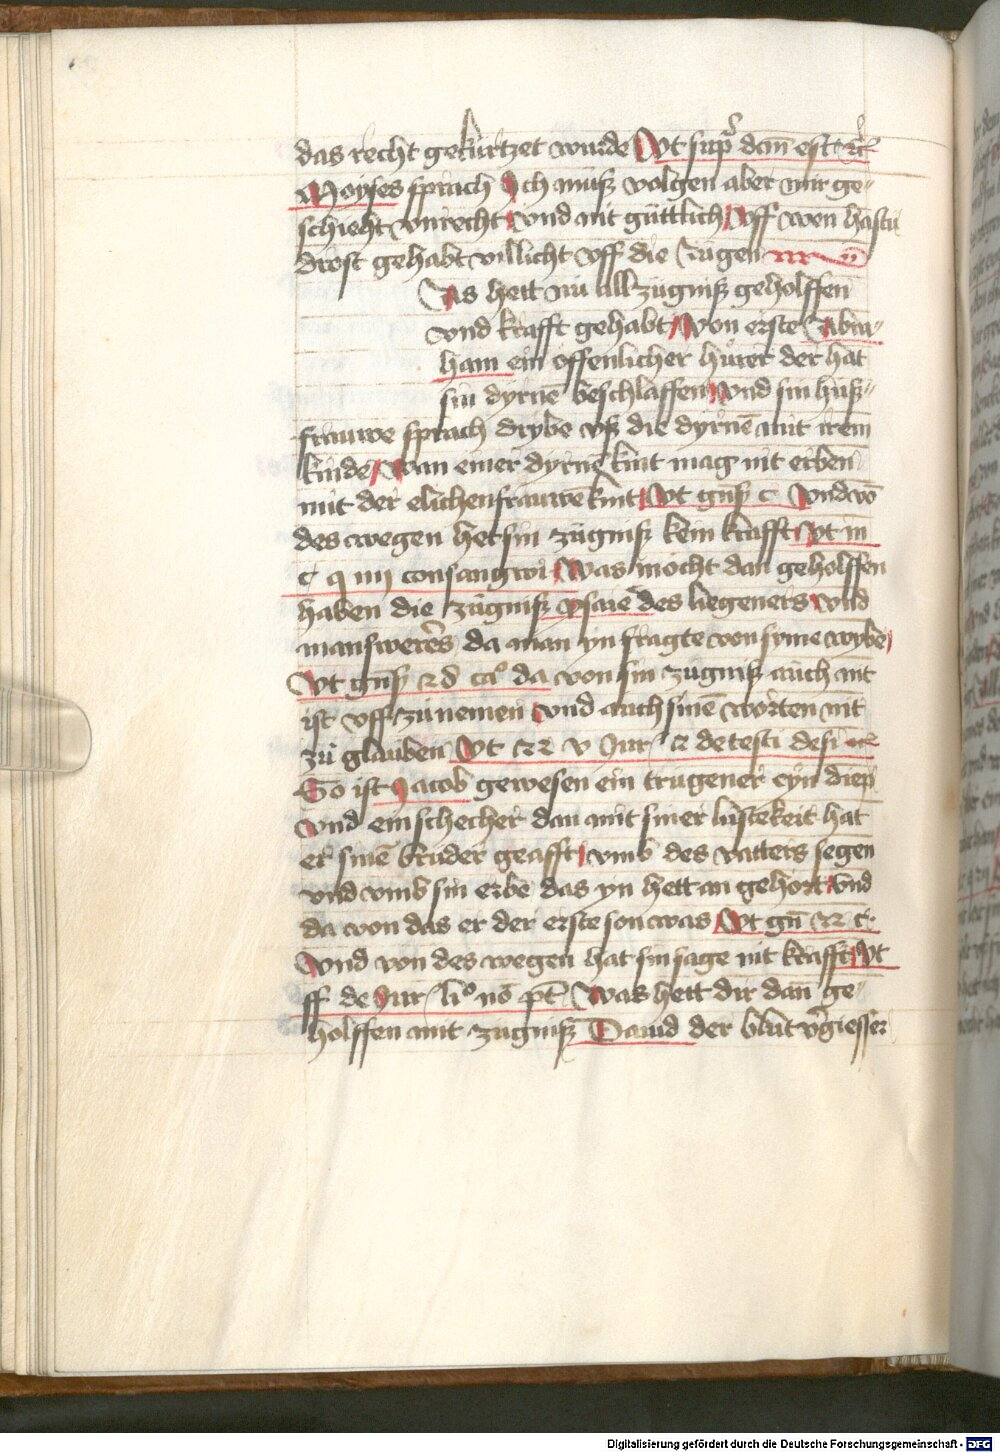 das recht gekurtzet wurde Vt sup̄ dam̄ est ꝛc̄
Moyses sprach Ich muß volgen aber mir ge-
schieht vnrecht vnd nit güttlich vff wen hastu
drost gehabt villicht vff die zugen
Was hett nu all zügniß geholffen
vnd krafft gehabt Von erste Abra-
ham ein offenlicher hurer der hat
sin dyrnē beschlaffen vnd sin huß-
frauwe sprach drybe vß die dyrnē mit irem
kinde wan einer dyrnē kint mag nit erben
mit der elichenfrauwē kint Vt gn̄s c Vnd vō
des wegen het sin zügniß kein krafft Vt in
c q iiij consangwi Was mocht dan geholffen
haben die zügniß ysaie des liegeners vnd
mansweres da man yn fragte von syme wybe
Vt gn̄s da von sin zügniß auch nit
ist vff zu nemen vnd auch sinē worten nit
zü glauben Vt v Jur de testi
So ist Jacob gewesen ein trugener eyn diep
vnd ein schecher dan mit siner listekeit hat
er sinē bruder geafft vmb des vatters segen
vnd vmb sin erbe das yn hett an gehort vnd
da von das er der erste son was Vt gn̄ c
Vnd von des wegen hat sin sage nit krafft Vt
ff de Jur li° nō Was hett dir dan̄ ge-
holffen mit zügniß Dauid der blut v̄giesser
Digitalisierung gefördert durch die Deutsche Forschungsgemeinschaft - DFG